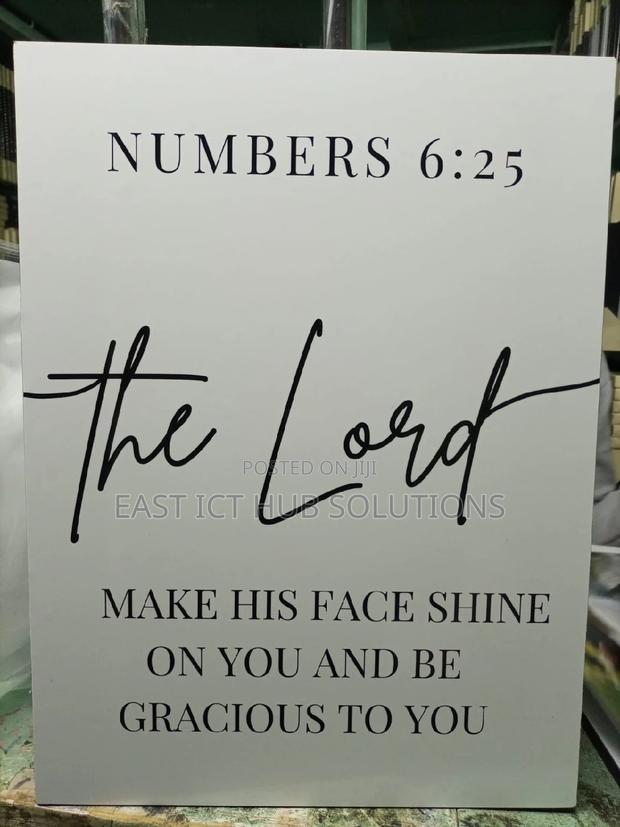 NUMBERS 6:25
the Lord
POSTED ON JIJI
EAST ICT HUB SOLUTIONS
MAKE HIS FACE SHINE
ON YOU AND BE
GRACIOUS TO YOU